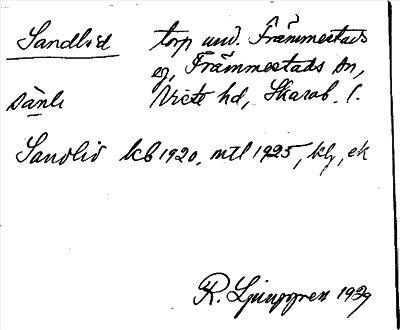 Sandlid torp und. Främmestads
eg, Främmestads sn,
Viste hd, Skarab. l.
Sandlid kb 1920, mtl 1925, kg, ek
R. Ljunggren 1929